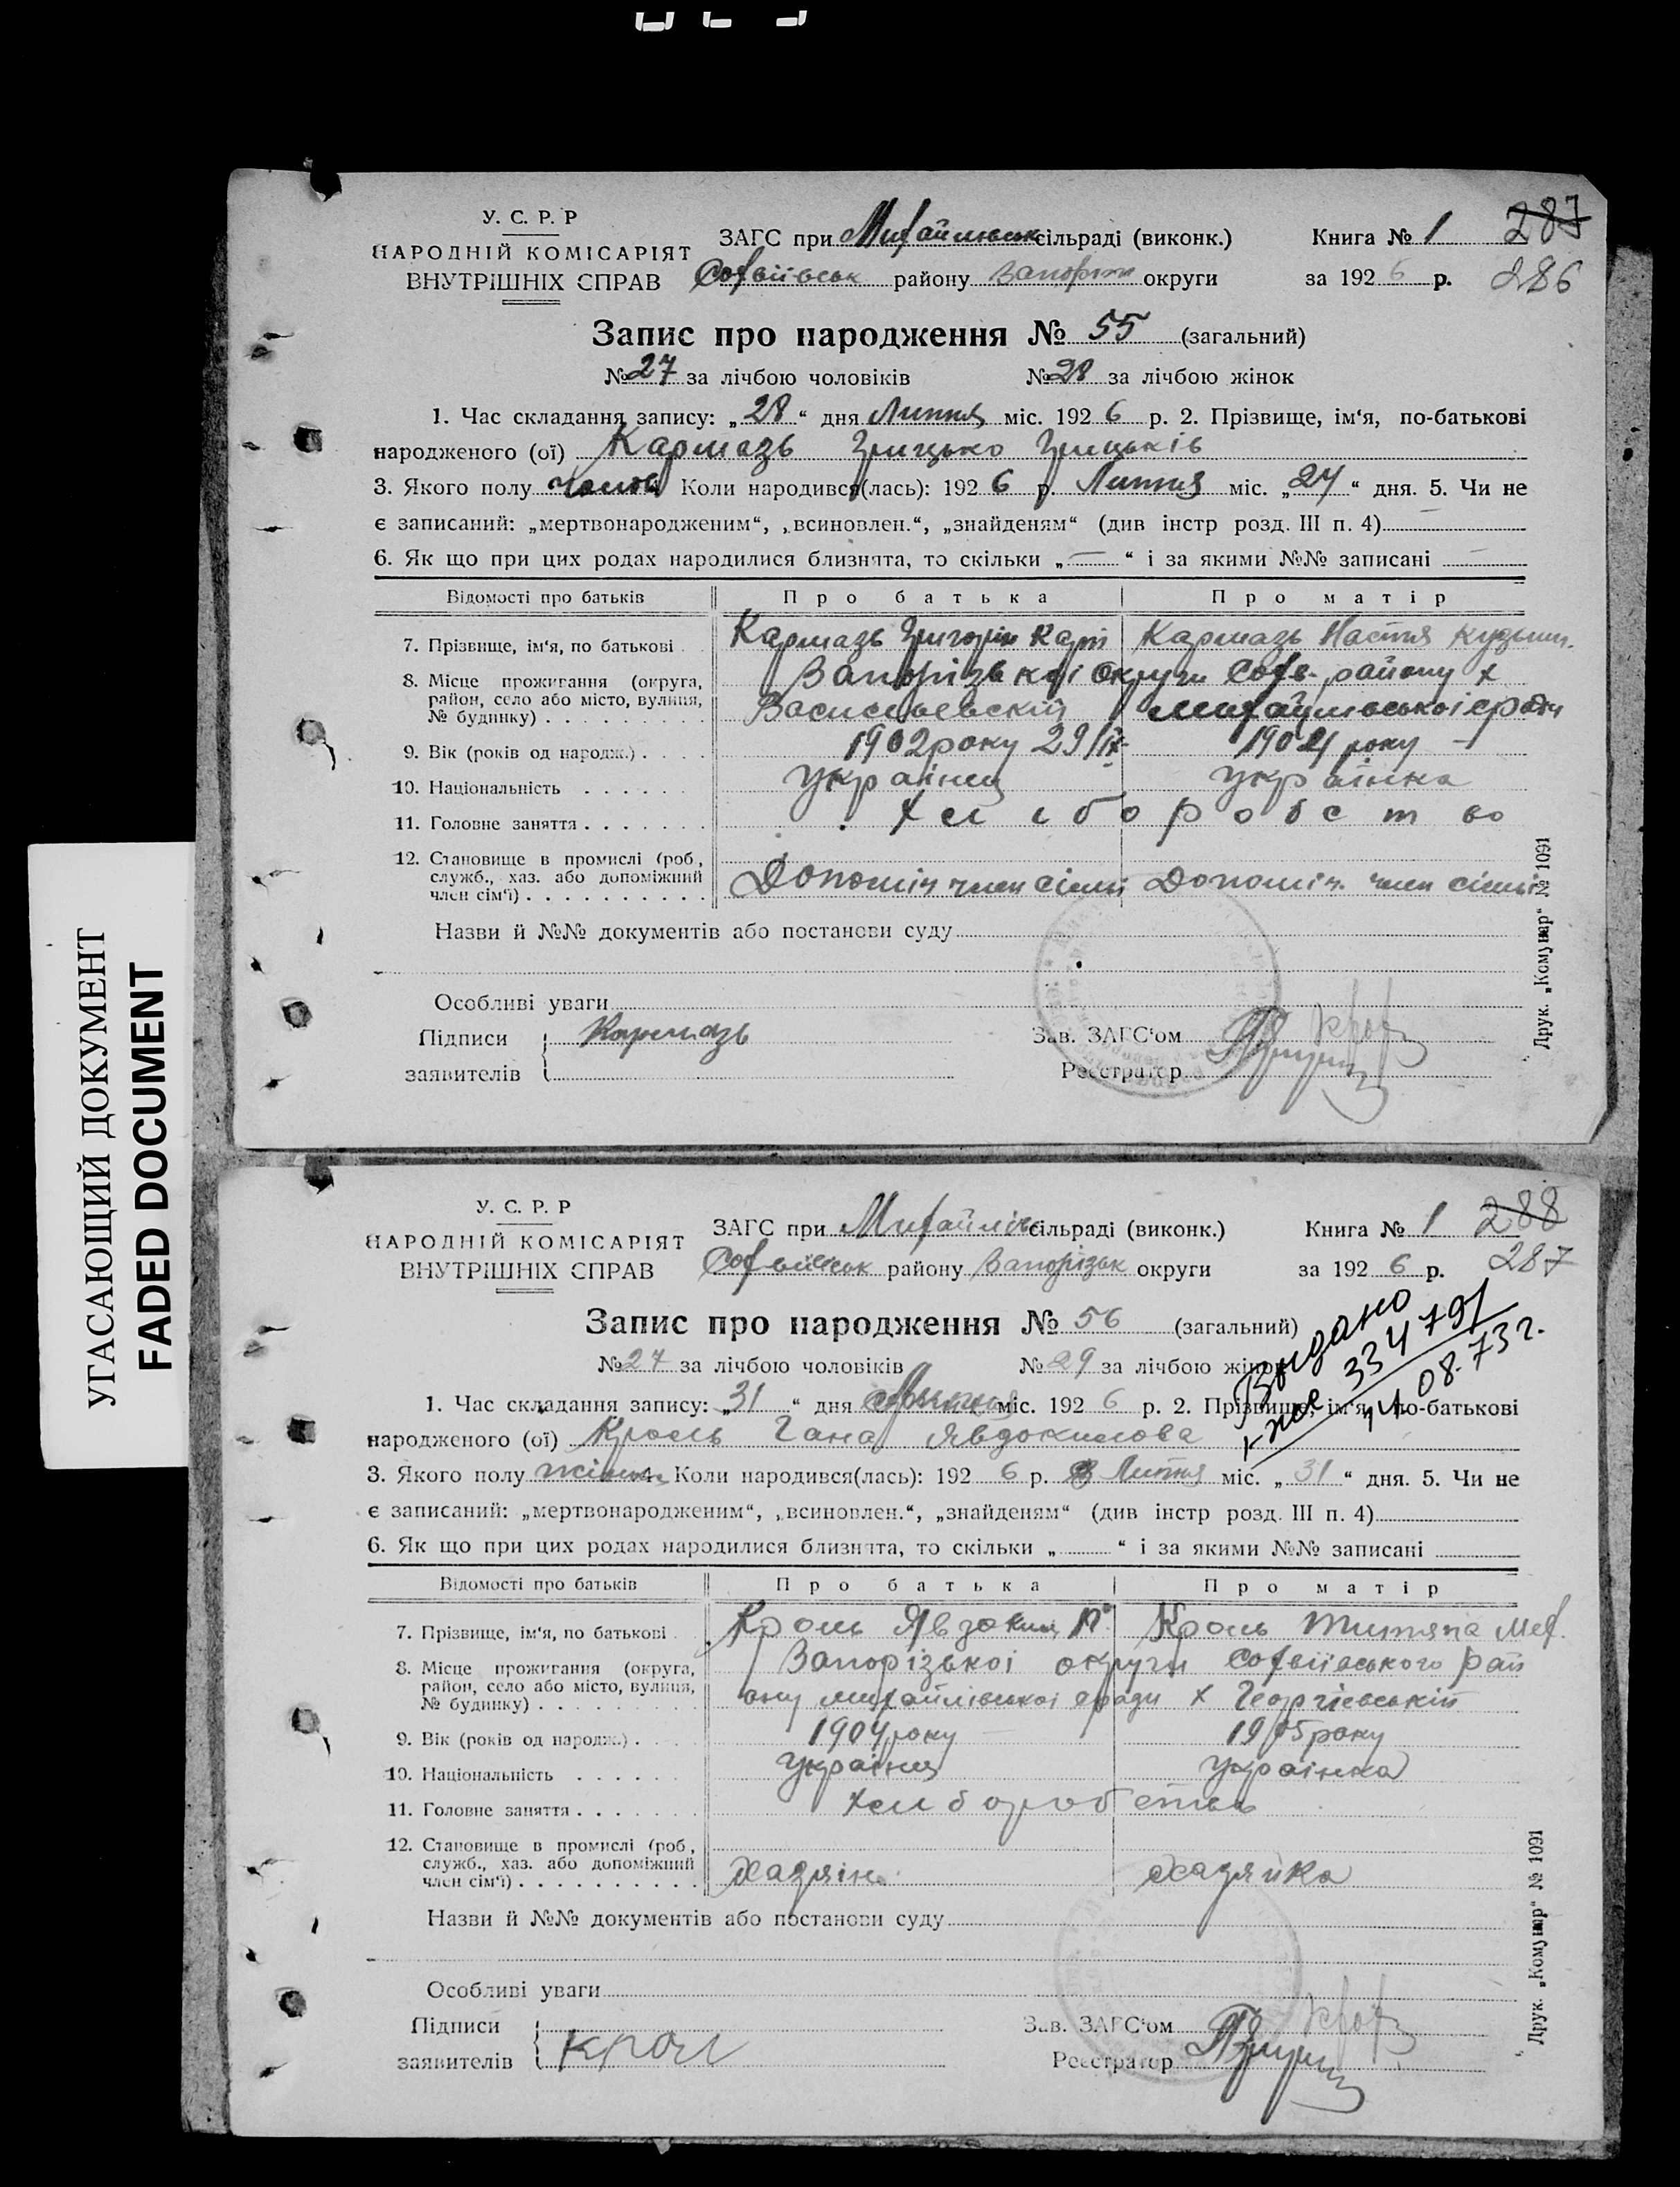 УГАСАЮЩИЙ ДОКУМЕНТ
FADED DOCUMENT
У. С. Р. Р
НАРОДНІЙ КОМІСАРІЯТ
ВНУТРІШНІХ СПРАВ
ЗАГС при Михайлівськ сільраді (виконк.)
Софвіівськ району Запоріж округи
Книга № 1 287
за 192 6 р. 286
Запис про народження № 55 (загальний)
№ 27 за лічбою чоловіків № 28 за лічбою жінок
1. Час складання запису: „28“ дня Липня міс. 192 6 р. 2. Прізвище, ім‘я, по-батькові
народженого (ої) Кармазь Грицько Грицьків
3. Якого полу чолов. Коли народився(лась): 192 6 р. Липня міс. „24“ дня. 5. Чи не
є записаний: „мертвонародженим“, „всиновлен.“, „знайденям“ (див інстр розд. III п. 4)
6. Як що при цих родах народилися близнята, то скільки „—“ і за якими №№ записані —
Відомості про батьків Про батька Про матір
7. Прізвище, ім‘я, по батькові Кармазь Григорій Карп Кармазь Настя Кузьмин.
8. Місце прожигання (округа, район, село або місто, вулиця, № будинку) Запорізькоі округи Софв. району х
Васисльевскій Михайлівськоі с ради
9. Вік (років од народж.) 1902 року 29/IX 1904 року —
10. Національність Украінец Украінка
11. Головне заняття Хлиборобство
12. Становище в промислі (роб., служб., хаз. або допоміжний член сім‘ї) Допоміч член сімьі Допоміч. член сімьі
Назви й №№ документів або постанови суду
Особливі уваги
Підписи заявителів Кармазь
Зав. ЗАГС‘ом
Реєстратор
Друк. „Комунар“ № 1091
У. С. Р. Р
НАРОДНІЙ КОМІСАРІЯТ
ВНУТРІШНІХ СПРАВ
ЗАГС при Михайлівс сільраді (виконк.)
Софвіівськ району Запорізьк округи
Книга № 1 288
за 192 6 р. 287
Запис про народження № 56 (загальний)
№ 27 за лічбою чоловіків № 29 за лічбою жінок
Выдано
1-жс 334797
14.08.73 г.
1. Час складання запису: „31“ дня Липня міс. 192 6 р. 2. Прізвище, ім‘я, по-батькові
народженого (ої) Кроль Гана Явдокимова
3. Якого полу жіноч. Коли народився(лась): 192 6 р. Липня міс. „31“ дня. 5. Чи не
є записаний: „мертвонародженим“, „всиновлен.“, „знайденям“ (див інстр розд. III п. 4)
6. Як що при цих родах народилися близнята, то скільки „ “ і за якими №№ записані
Відомості про батьків Про батька Про матір
7. Прізвище, ім‘я, по батькові Кроль Явдоким М. Кроль Титяна Меф.
8. Місце прожигання (округа, район, село або місто, вулиця, № будинку) Запорізькоі округи Софвіівського рай
ону михайлівскоі с ради х Георгіевській
9. Вік (років од народж.) 1904 року 1905 року
10. Національність Украінец Украінка
11. Головне заняття Хлиборобство
12. Становище в промислі (роб., служб., хаз. або допоміжний член сім‘ї) Хазяін Хазяйка
Назви й №№ документів або постанови суду
Особливі уваги
Підписи заявителів Крол
Зав. ЗАГС‘ом
Реєстратор
Друк. „Комунар“ № 1091